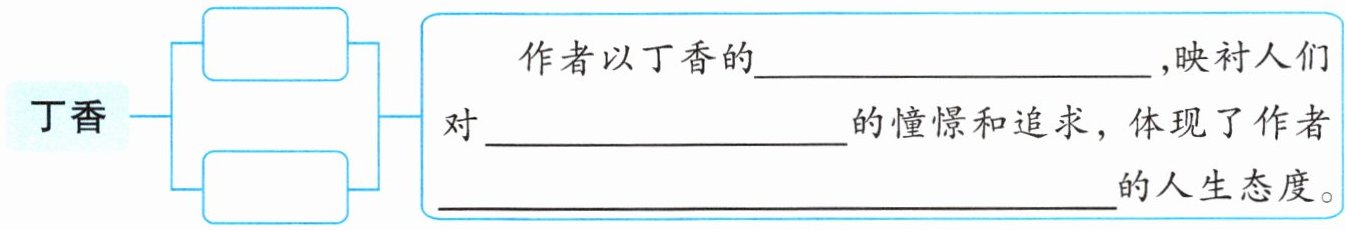 丁香
作者以丁香的____________________,映衬人们
对____________________的憧憬和追求,体现了作者
____________________的人生态度。